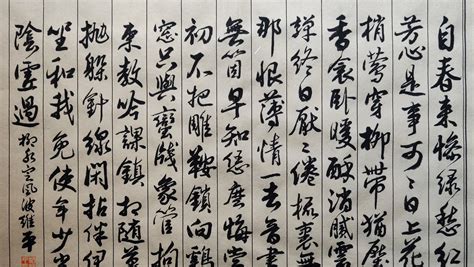 自春來慘綠愁紅
芳心是事可可日上花
梢鶯穿柳帶猶壓
香衾臥暖酥消膩雲
嚲終日厭厭倦梳裹無
那恨薄情一去音書
無箇早知恁麼悔當
初不把雕鞍鎖向鷄
窓只與蠻牋象管拘
束教吟課鎮相随莫
抛躲針線閑拈伴伊
坐和我免使年少光
陰虛過 柳永定風波